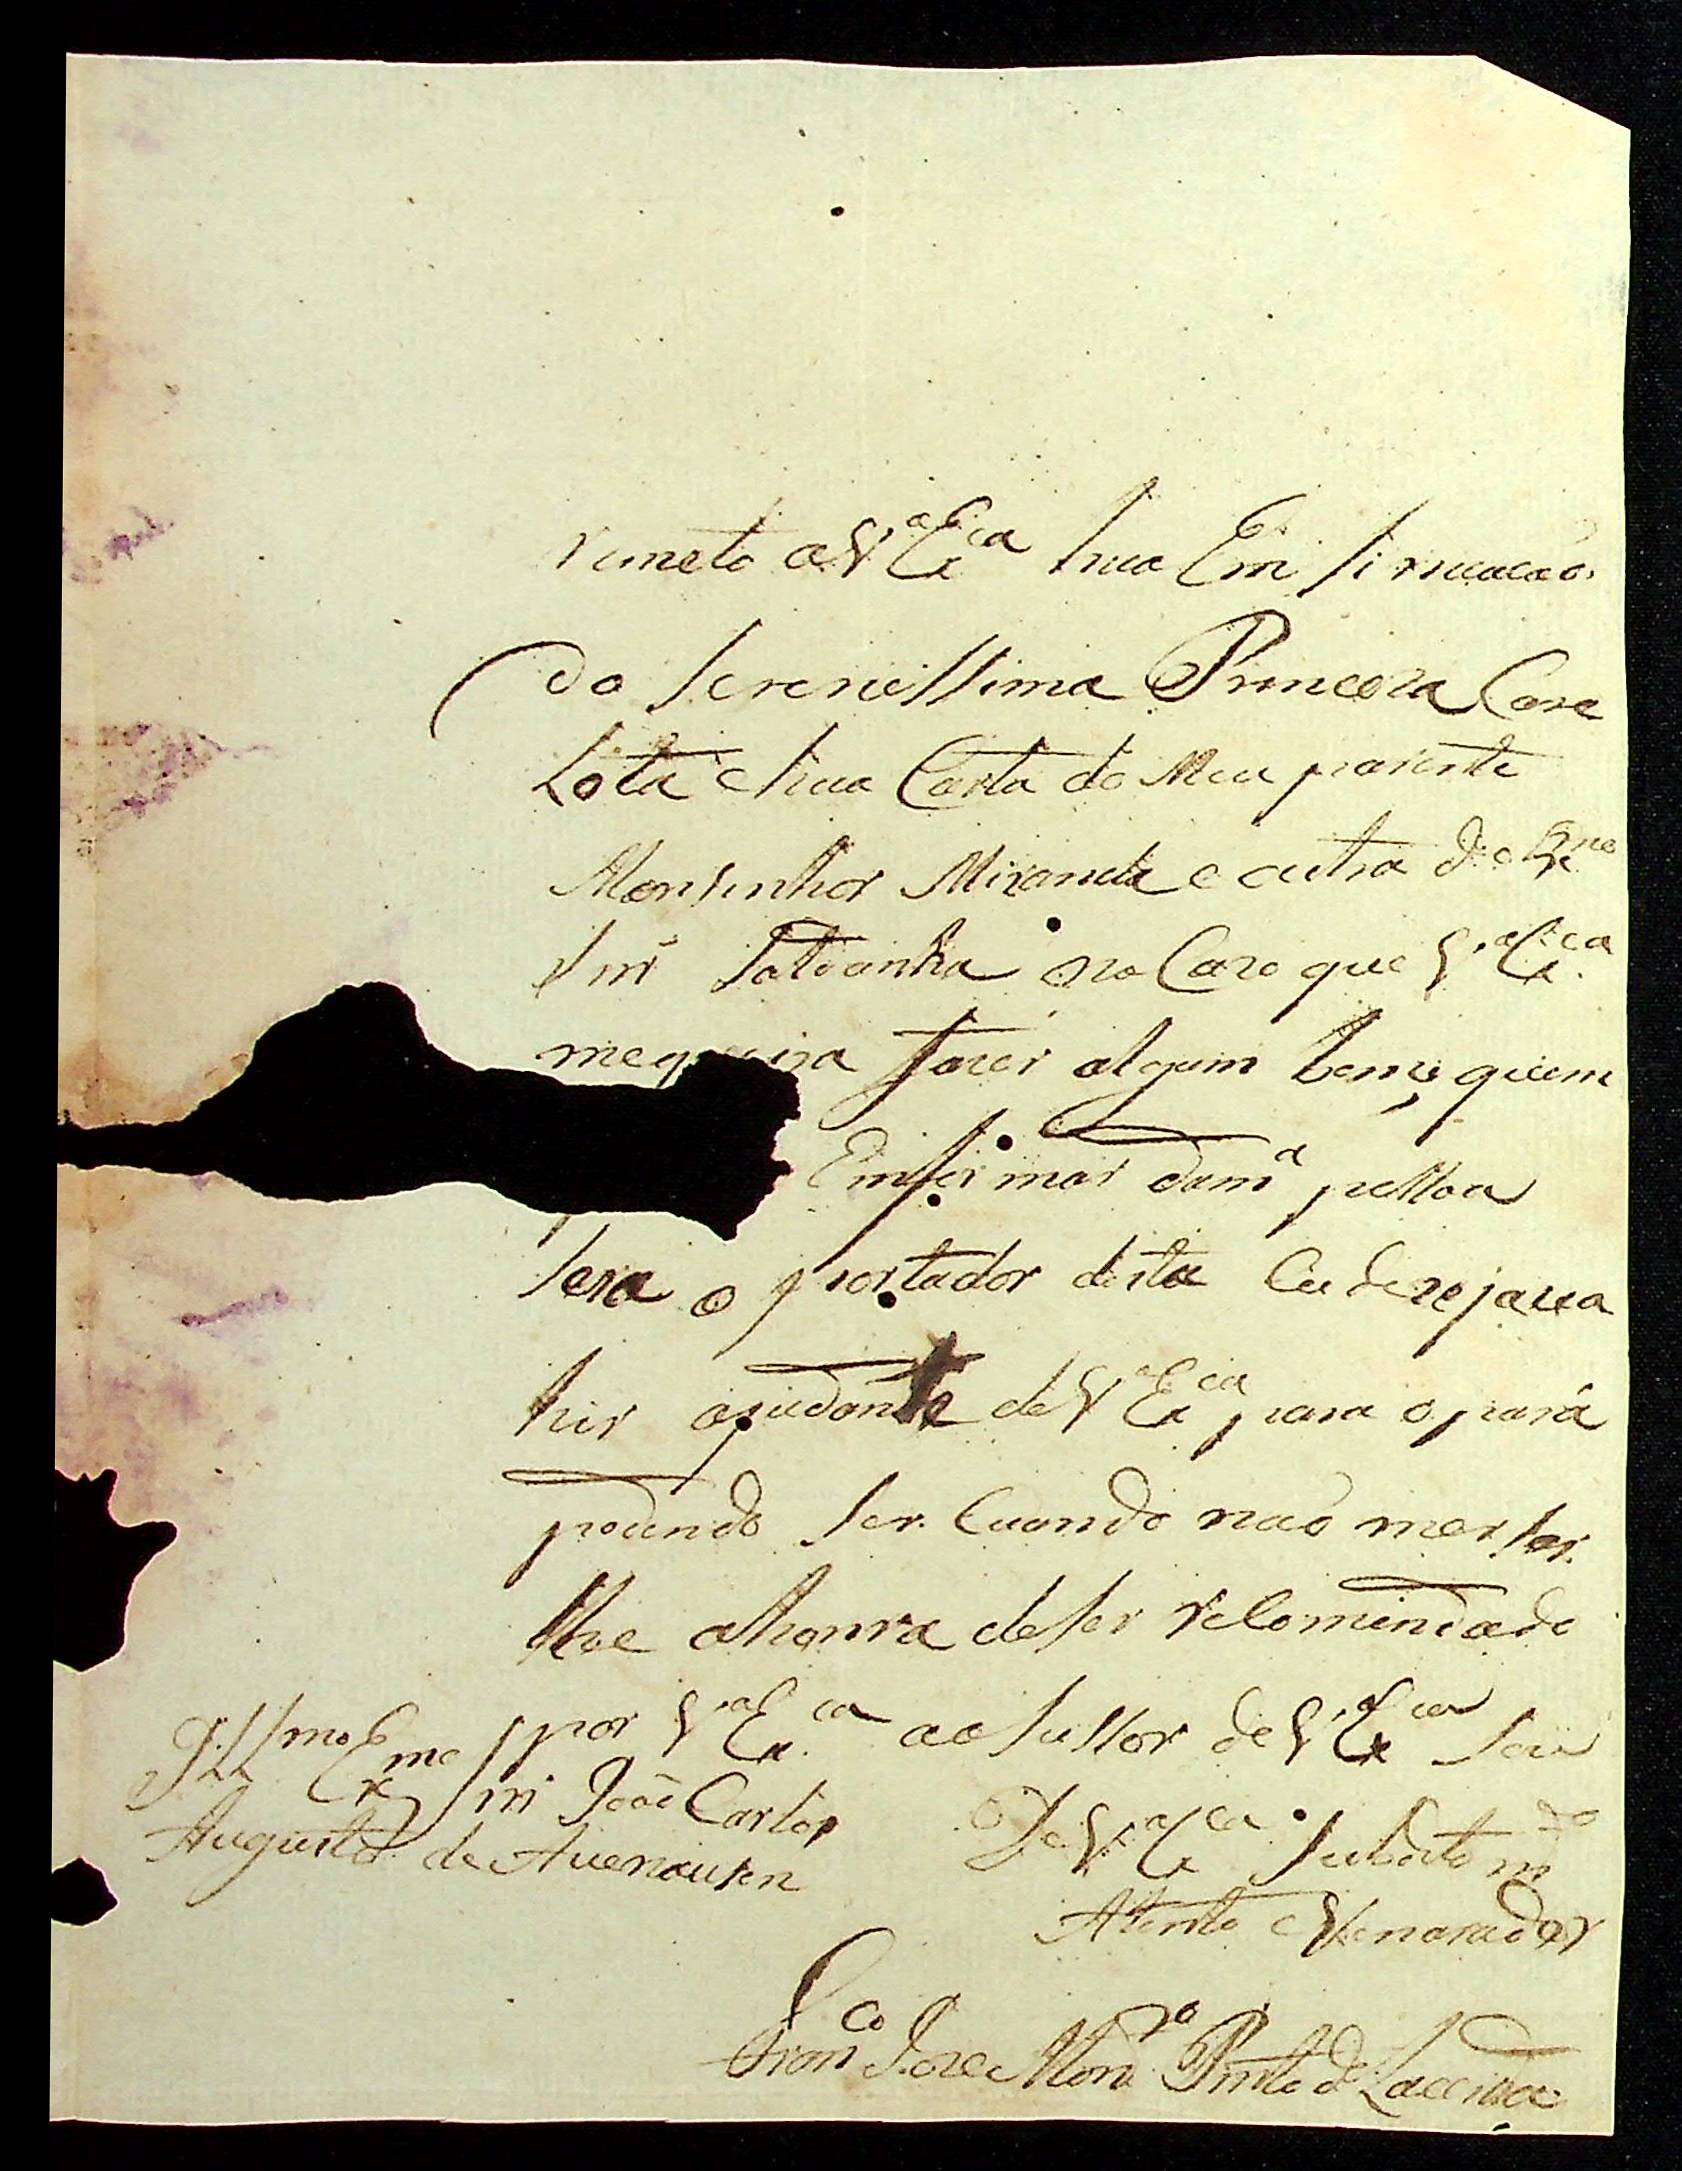 remeto a V.ª Ex.ca hua Em sinuacaõ
da serenissima Princeza Car
Lota e hua Carta do Meu parente
Monsinhor Miranda e outra do Ex.mo
Snr Saldanha no Cazo que V.ª Ex.ca
me queira fazer algum bem quem
Emformar dam.ª pessoa
sera o portador desta Eu dezejava
hir ajudante de V.ª Ex.ca para o pará
podendo ser. Cuando naõ merser.
lhe a honra de ser Recomendado
por V.ª Ex.ca ao sussor de V.ª Ex.ca Sou
Ill.mo Ex.mo Snr Joaõ Carlos
Augusto de Auenausen
De V.ª Ex.ca Subdito m.
Atento e Venarador
Fran.co Joze Mor.ra Pinto de